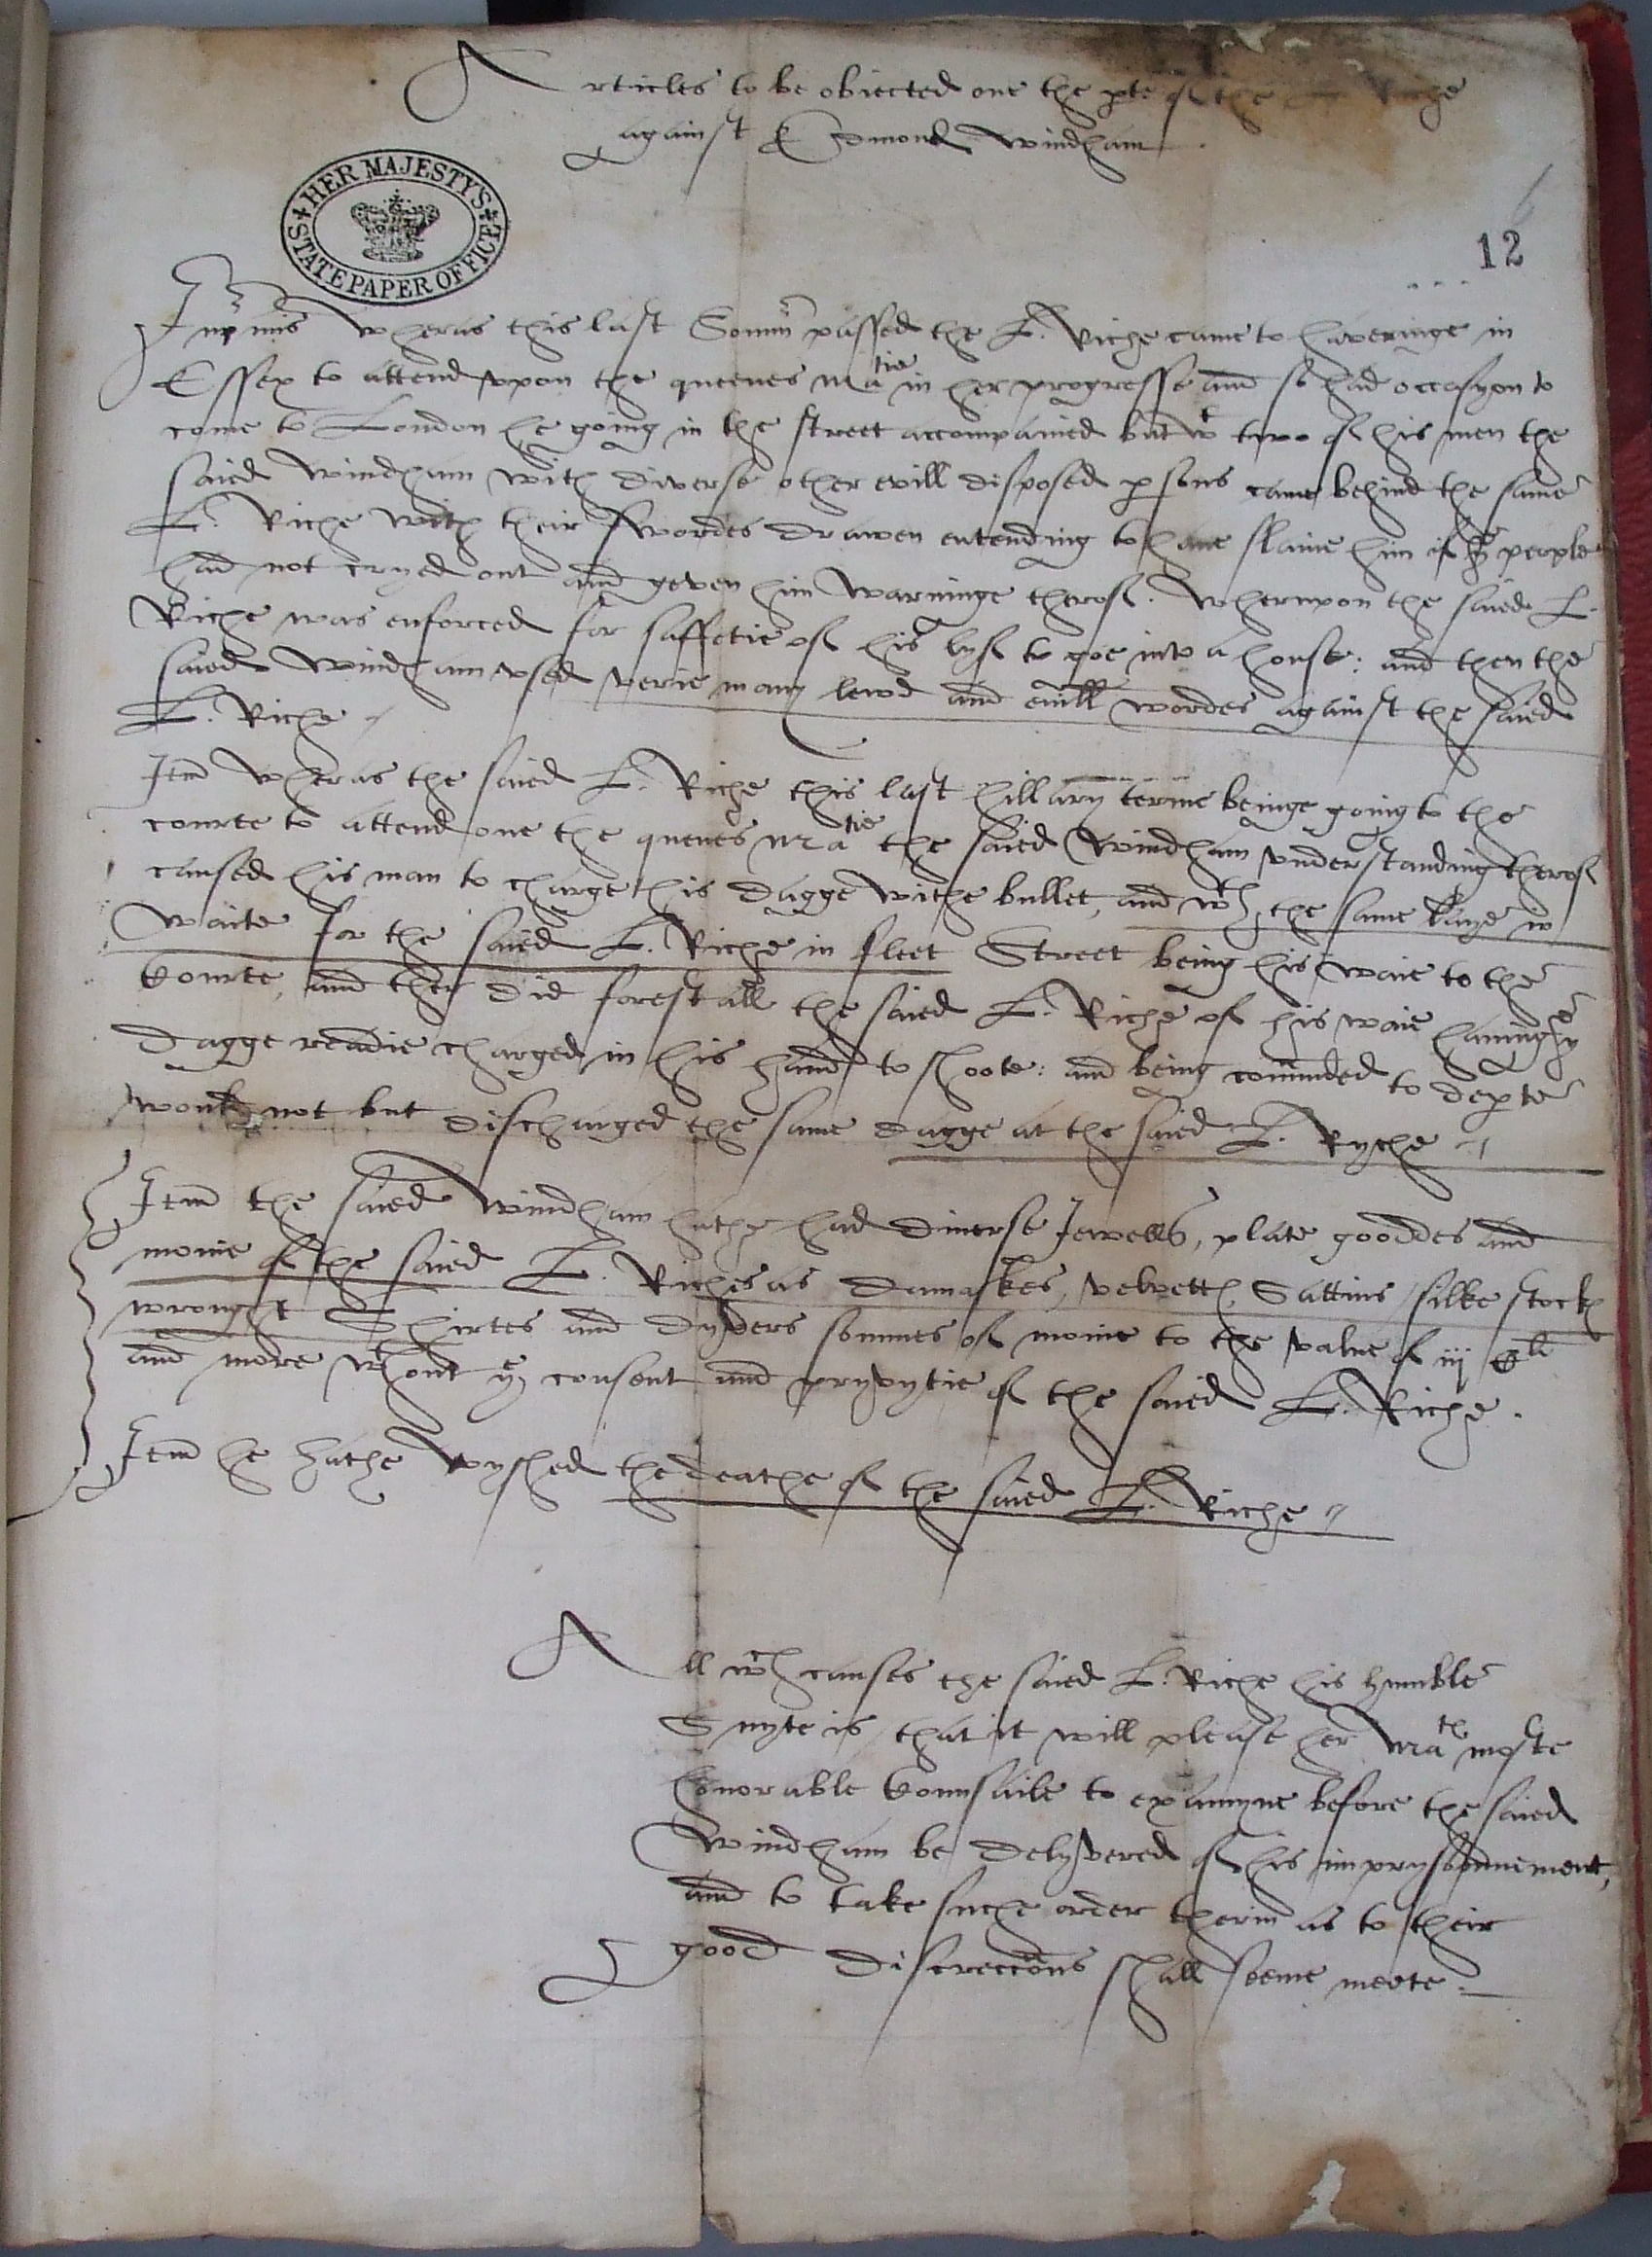 Articles to be obiected one the pte of the L. Riche
against Edmond Windham
HER MAJESTY'S
STATE PAPER OFFICE
12
Inpmis wheras this last Somm passed the L. Riche came to haveringe in
Essex to attend vpon the queenes Matie in her progresse and so had occasyon to
come to London he going in the street accompained but wt two of his men the
saied Windham with diverse other evill disposed psons came behind the same
L. Riche with their swordes drawen entending to have slaine him if ye people
had not cryed out and geven him warninge therof. Wherupon the saied L.
Riche was enforced for saffetie of his lyf to goe into a house: and then the
saied Windham vsed verie many lewd and euill wordes against the saied
L. Riche
Itm wheras the saied L. Riche this last hillary terme beinge going to the
courte to attend one the quenes Matie the saied Windham vnderstanding therof
caused his man to charge his dagge withe bullet, and wth the same laye in
waite for the saied L. Riche in fleet Street being his waie to the
Courte, and ther did forestall the saied L. Riche of his waie hauing ye
dagge readie charged in his hand to shoote: and being commded to depte
would not but discharged the same dagge at the saied L. Ryche
Itm the saied Windham hathe had diuerse Jewells, plate gooddes and
monie of the saied L. Riches as damaskes, velvettes Sattins silke stockes
wrought Shirtes and dyvers sommes of monie to the value of iij Cli
and more wthout ye consent and pryvytie of the saied L. Riche.
Itm he hathe wyshed the deathe of the saied L. Riche
All wch causes the saied L. Riche his humble
Suyte is that it will please her Maties moste
honorable Counsaile to examyne before the saied
Windham be delyvered of his imprysonnement,
and to take suche order therin as to their
good discreccons shall seeme meete.